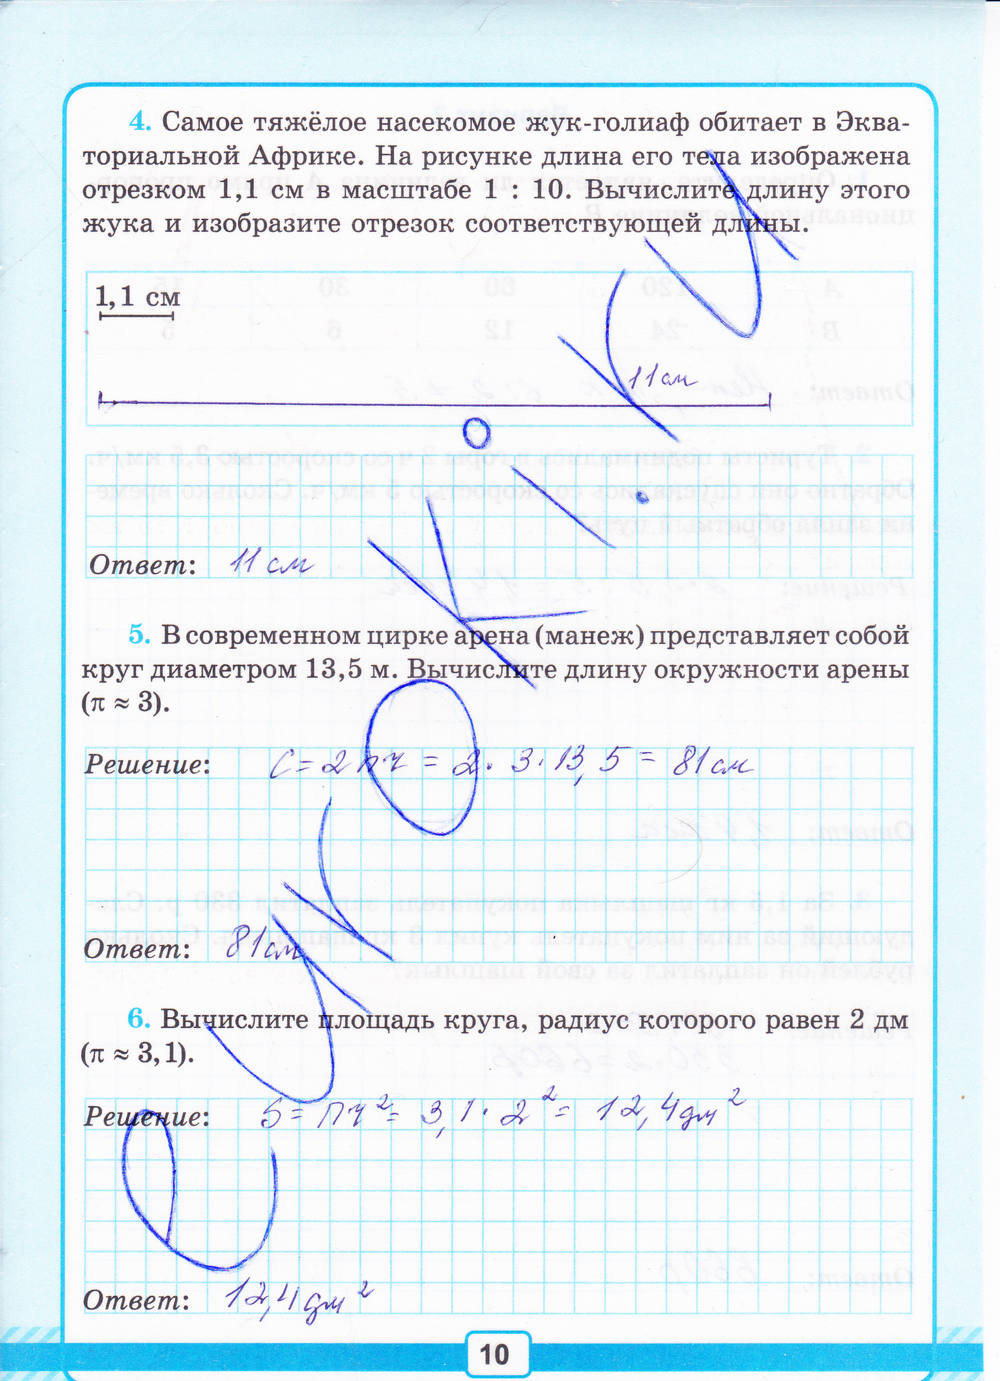 4. Самое тяжёлое насекомое жук-голиаф обитает в Эква-
ториальной Африке. На рисунке длина его тела изображена
отрезком 1,1 см в масштабе 1 : 10. Вычислите длину этого
жука и изобразите отрезок соответствующей длины.
1,1 см
11 см
Ответ: 11 см
5. В современном цирке арена (манеж) представляет собой
круг диаметром 13,5 м. Вычислите длину окружности арены
(π ≈ 3).
Решение: C = 2πr = 2 · 3 · 13,5 = 81 см
Ответ: 81 см
6. Вычислите площадь круга, радиус которого равен 2 дм
(π ≈ 3,1).
Решение: S = πr² = 3,1 · 2² = 12,4 дм²
Ответ: 12,4 дм²
10